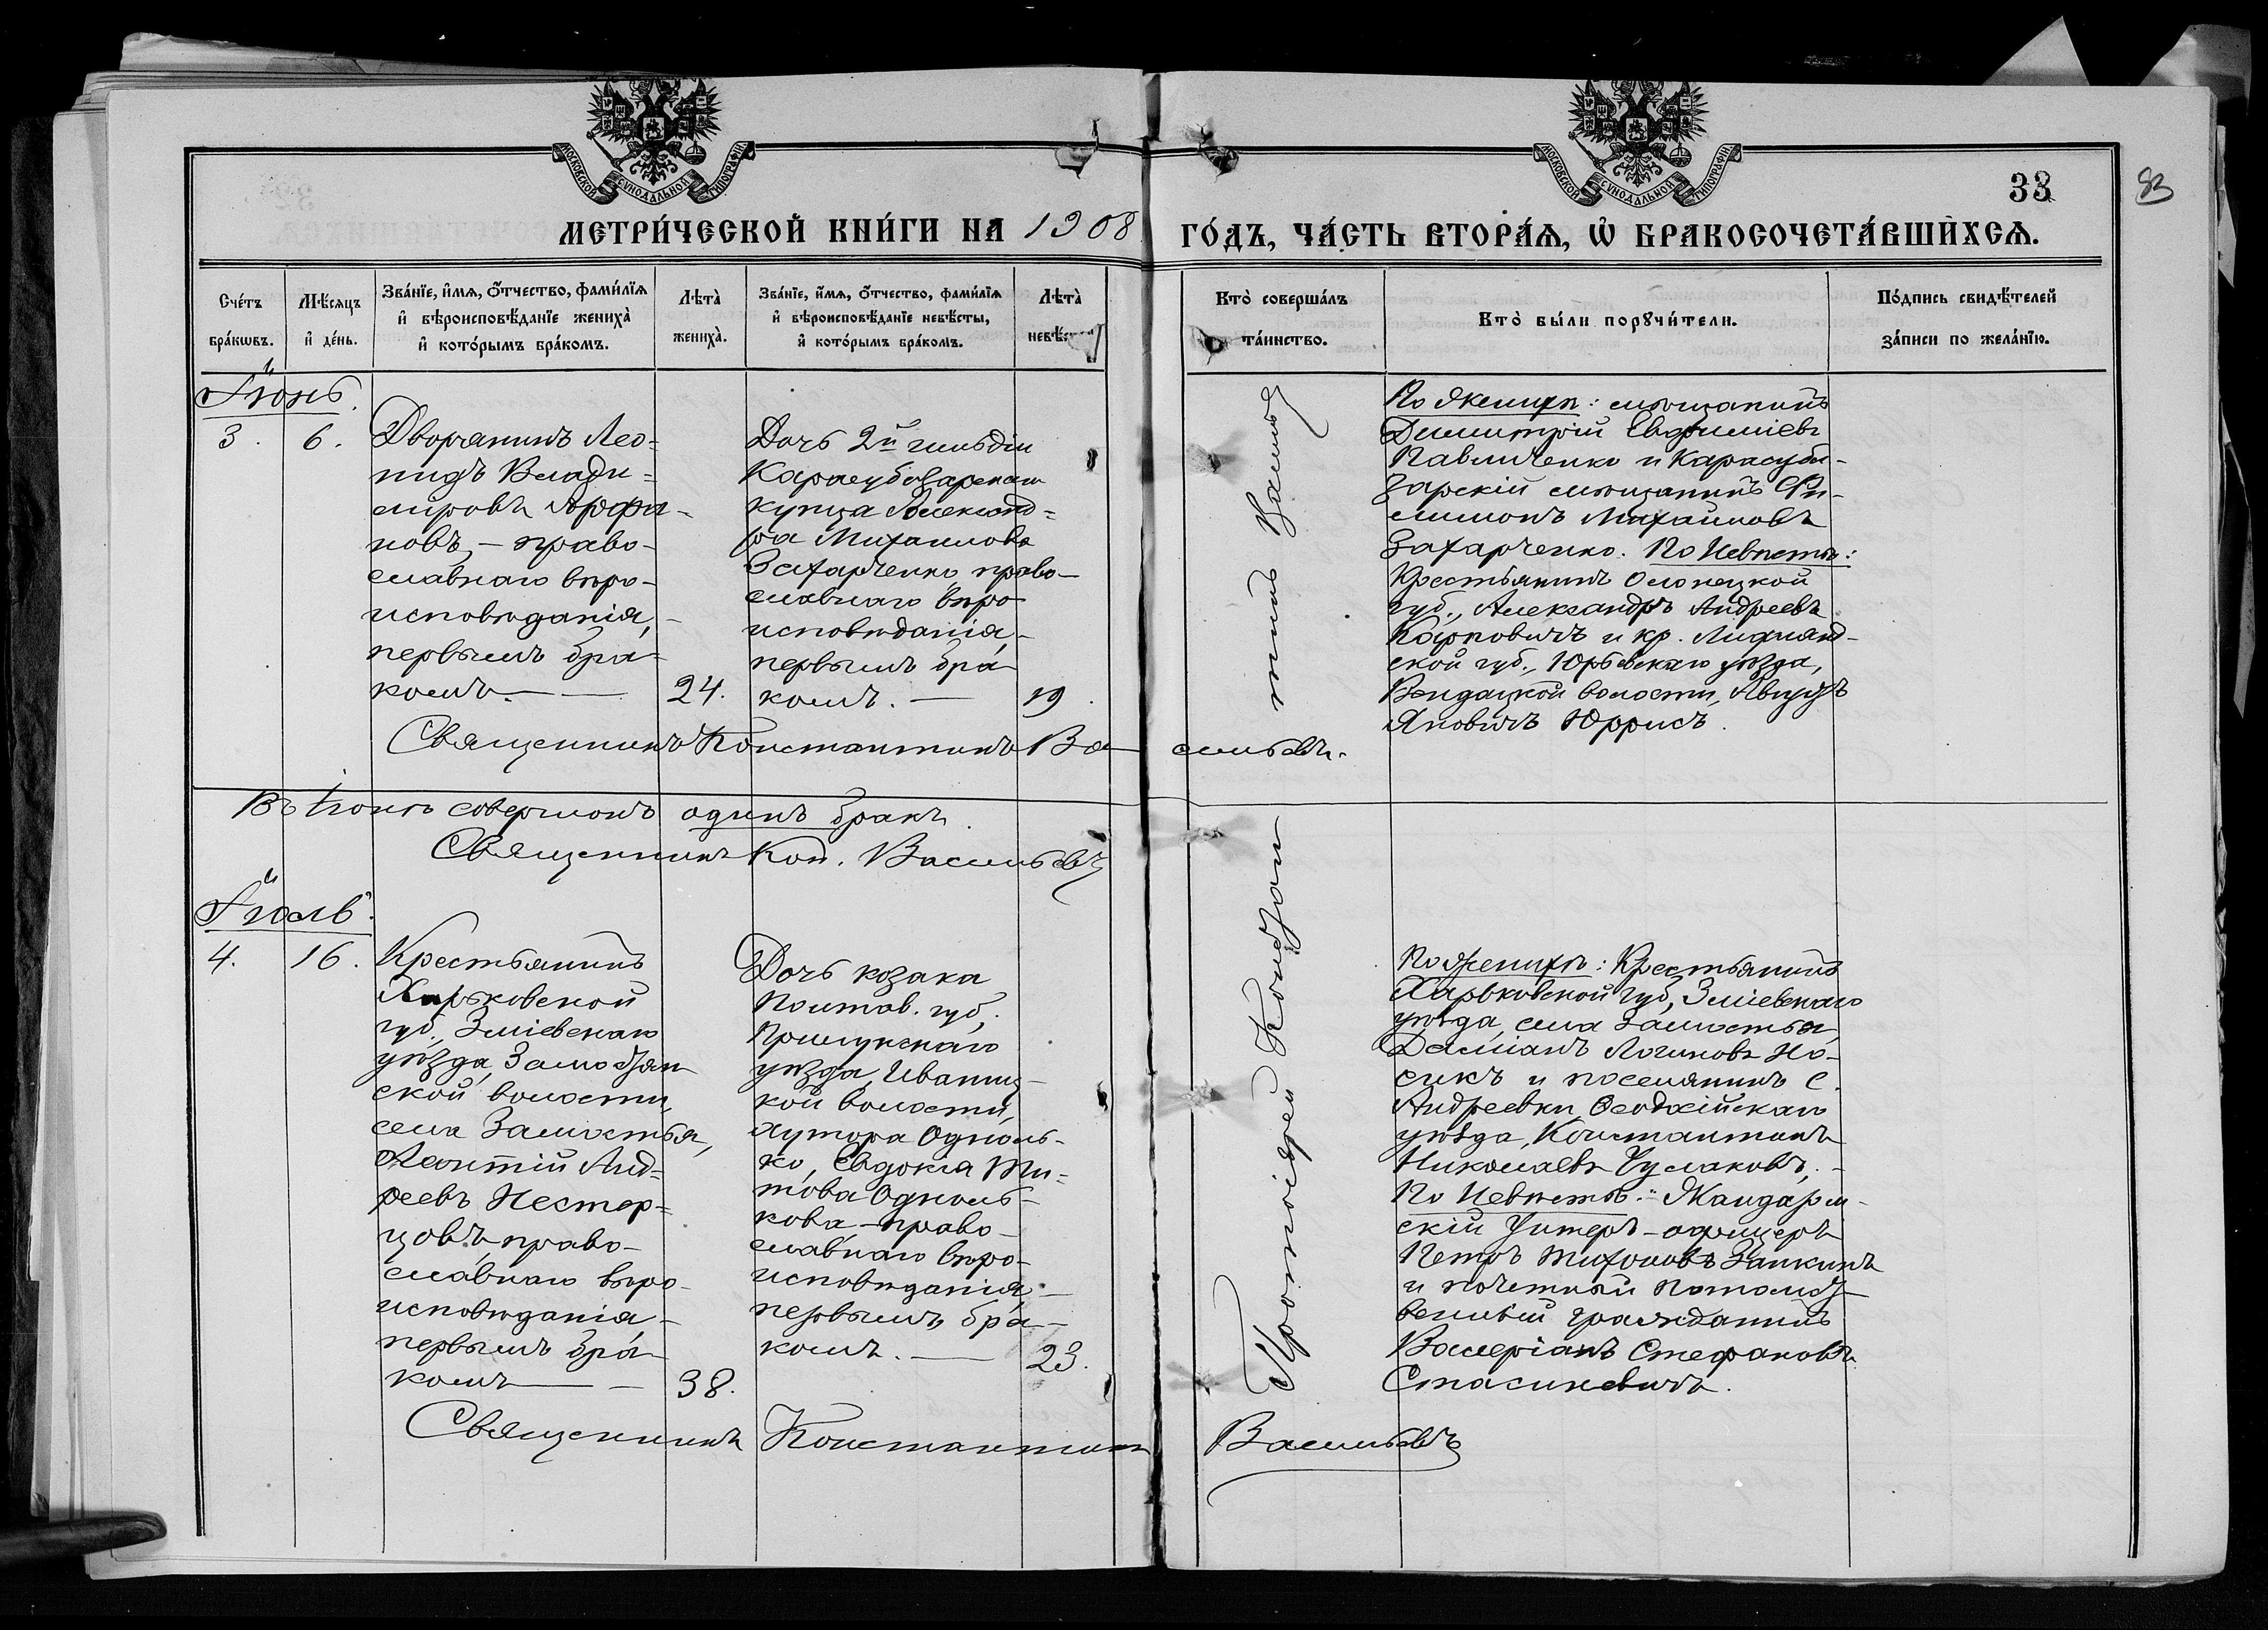 МОСКОВСКОЙ СѴНОДАЛЬНОЙ ТИПОГРАФІИ
МОСКОВСКОЙ СѴНОДАЛЬНОЙ ТИПОГРАФІИ
33
МЕТРИ́ЧЕСКОЙ КНИ́ГИ НА 1908 ГО́ДЪ, ЧА́СТЬ ВТОРА́Ѧ, Ѡ҆ БРАКОСОЧЕТА́ВШИХСѦ.
Сче́тъ
бра́кѡвъ.
Мѣ́сяцъ
и҆ де́нь.
Зва́нїе, и҆́мѧ, ѻ҆́тчество, фами́лїѧ
и҆ вѣроисповѣ́данїе жениха̀
и҆ кото́рымъ бра́комъ.
Лѣта̀
жениха̀.
Зва́нїе, и҆́мѧ, ѻ҆́тчество, фами́лїѧ
и҆ вѣроисповѣ́данїе невѣ́сты,
и҆ кото́рымъ бра́комъ.
Лѣта̀
Кто̀ соверша́лъ
та́инство.
Кто̀ бы́ли порꙋчи́тели.
По́дпись свидѣ́телей
за́писи по жела́нїю.
Іюнь.
3.
6.
Дворянинъ Лео=
нидъ Влади=
міровъ
новъ, – право-
славнаго вѣро-
исповѣданія, –
первымъ бра-
комъ. —
24.
Дочь 2й гильдіи
Карасубазарскаго
купца Александ=
ра Михаилова
Захарченко, право-
славнаго вѣро
исповѣданія, –
первымъ бра
комъ. —
19.
По женихѣ: мѣщанинъ
Димитрій Евфиміевъ
Павличенко и Карасуба-
зарскій мѣщанинъ Фи-
лимонъ Михаиловъ
Захарченко. По Невѣстѣ:
Крестьянинъ Олонецкой
губ., Александръ Андреевъ
Карповичъ и кр. Лифлянд-
ской губ., Юрьевскаго уѣзда,
волости, Августъ
Яновичъ Юррисъ.
Священникъ Константинъ Васильевъ.
Въ Іюнѣ совершонъ одинъ бракъ.
Священникъ Кон. Васильевъ
Іюль.
4.
16.
Крестьянинъ
Харьковской
губ., Зміевскаго
уѣзда, Замостян
ской волости,
села Замостья,
Леонтій Анд=
реевъ Нестер=
цовъ, право-
славнаго вѣро-
исповѣданія, –
первымъ бра-
комъ —
38.
Дочь козака
Полтав. губ.,
Прилукскаго
уѣзда, Иваниц-
кой волости,
хутора Одноль-
ко, Евдокія Ти-
това Одноль-
кова, – право-
славнаго вѣро-
исповѣданія –
первымъ бра-
комъ. —
23.
Протоіерей Констан
тинъ
По женихѣ: Крестьянинъ
Харьковской губ., Зміевскаго
уѣзда, села Замостья,
Даміанъ Логиновъ Но-
сикъ и поселянинъ с.
Андреевки, Ѳеодосійскаго
уѣзда, Константинъ
Николаевъ Чумаковъ. –
По Невѣстѣ: Жандарм-
скій Унтеръ-офицеръ
Петръ Тихоновъ Заикинъ
и почетный Потомст-
венный гражданинъ
Валеріанъ Стефановъ
Стасикевичъ.
Священникъ Константинъ Васильевъ